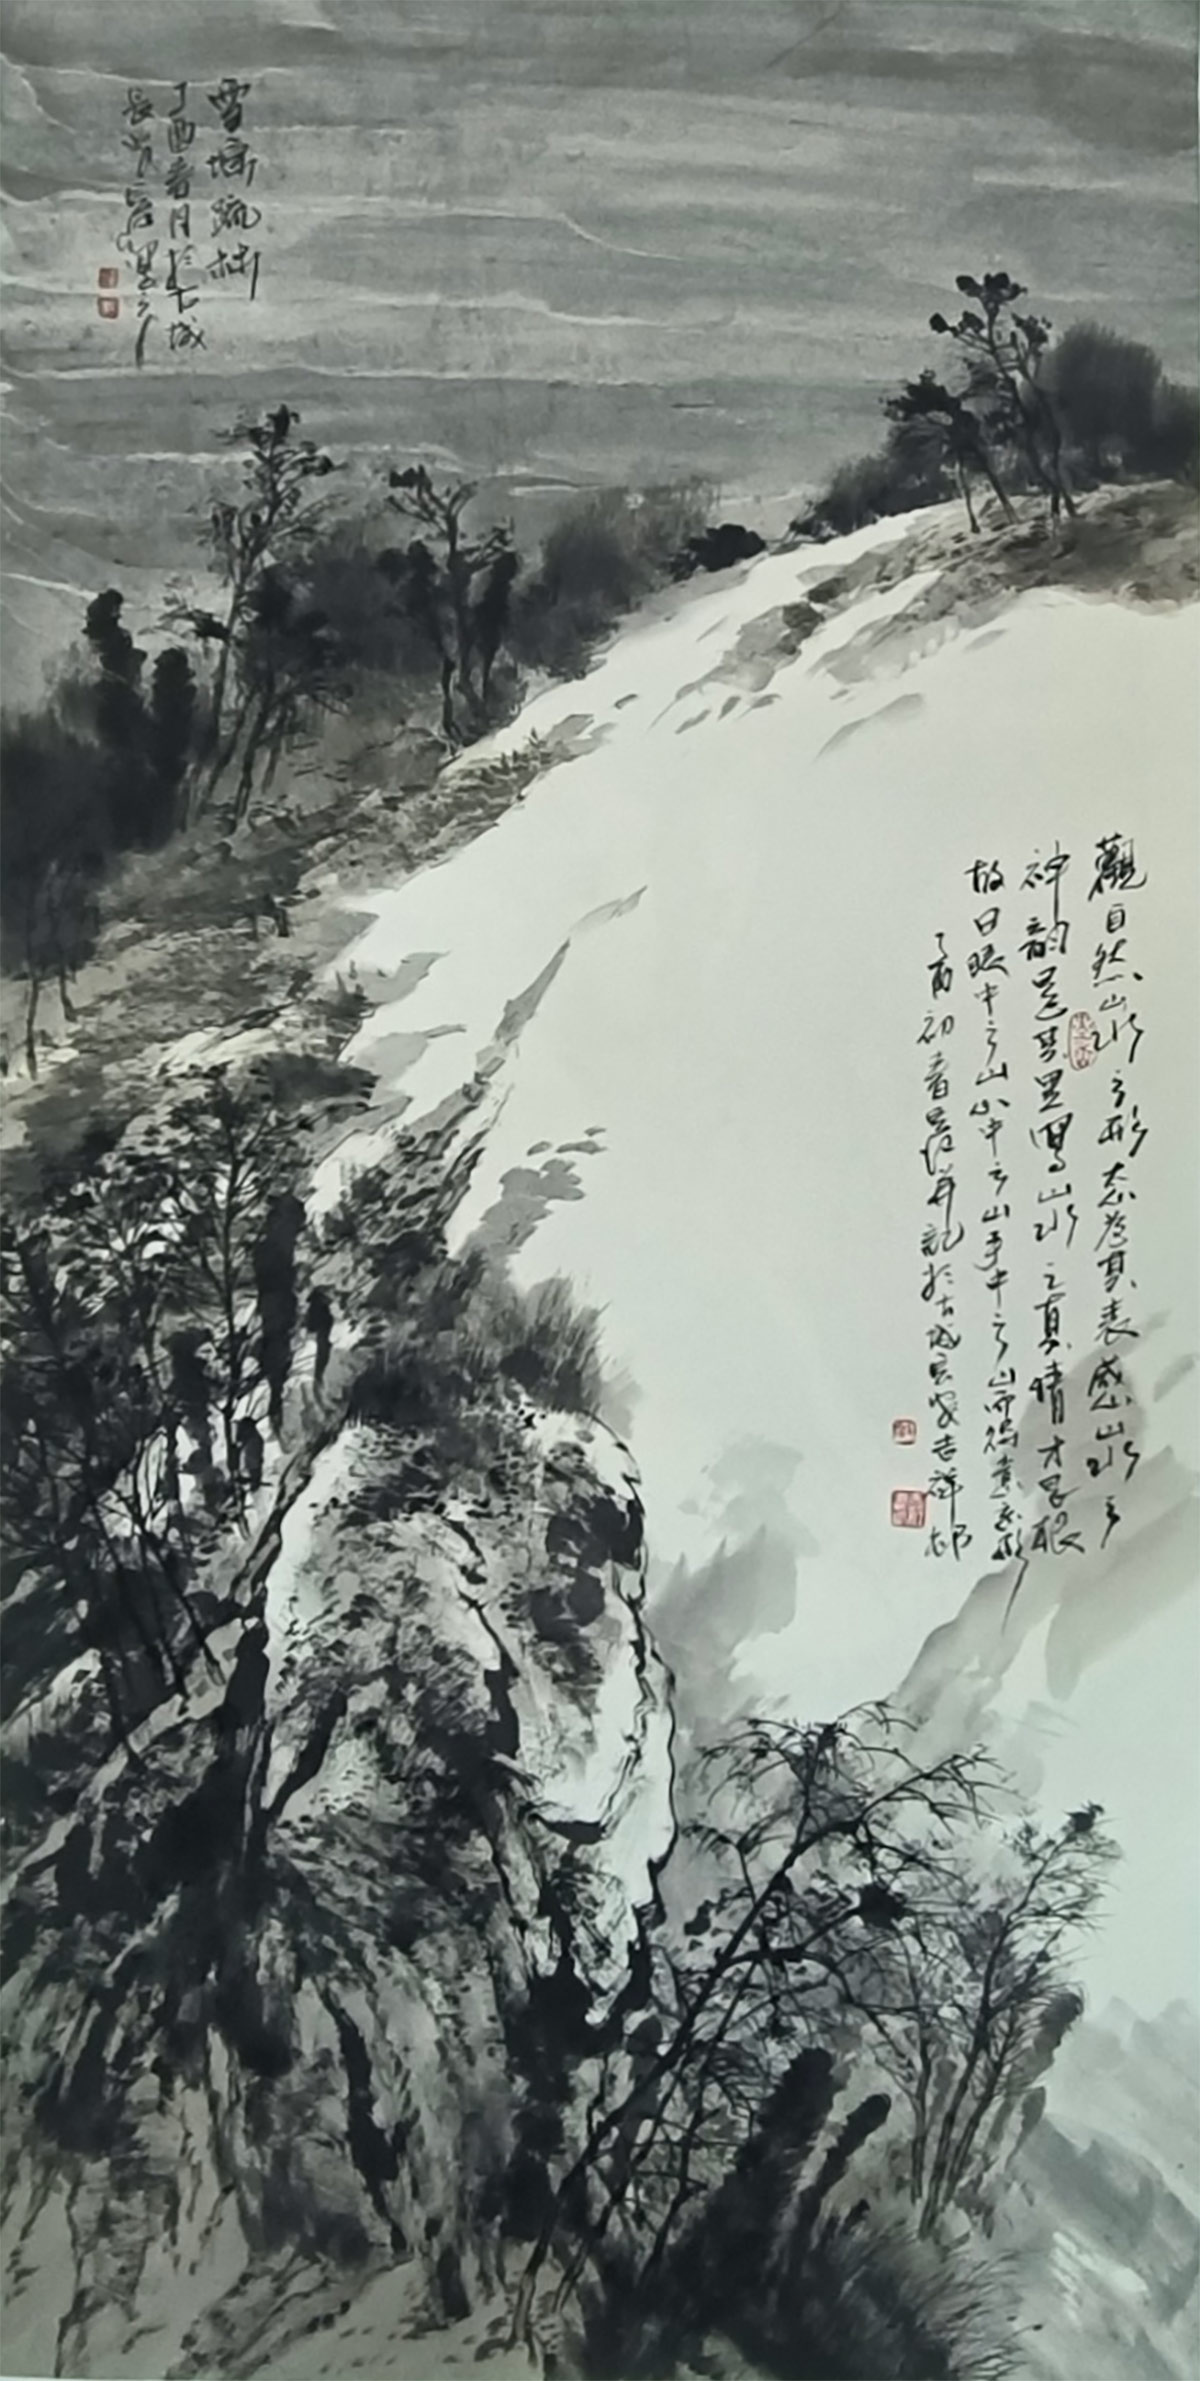 雪疏林
丁酉春月於古城
長安
觀自然山水之形态為其表感山水之
神韻是其里寫山水之真情才是根
故曰眼中之山心中之山手中之山而得意忘形
丁酉初春并記於古城長安吉祥邨